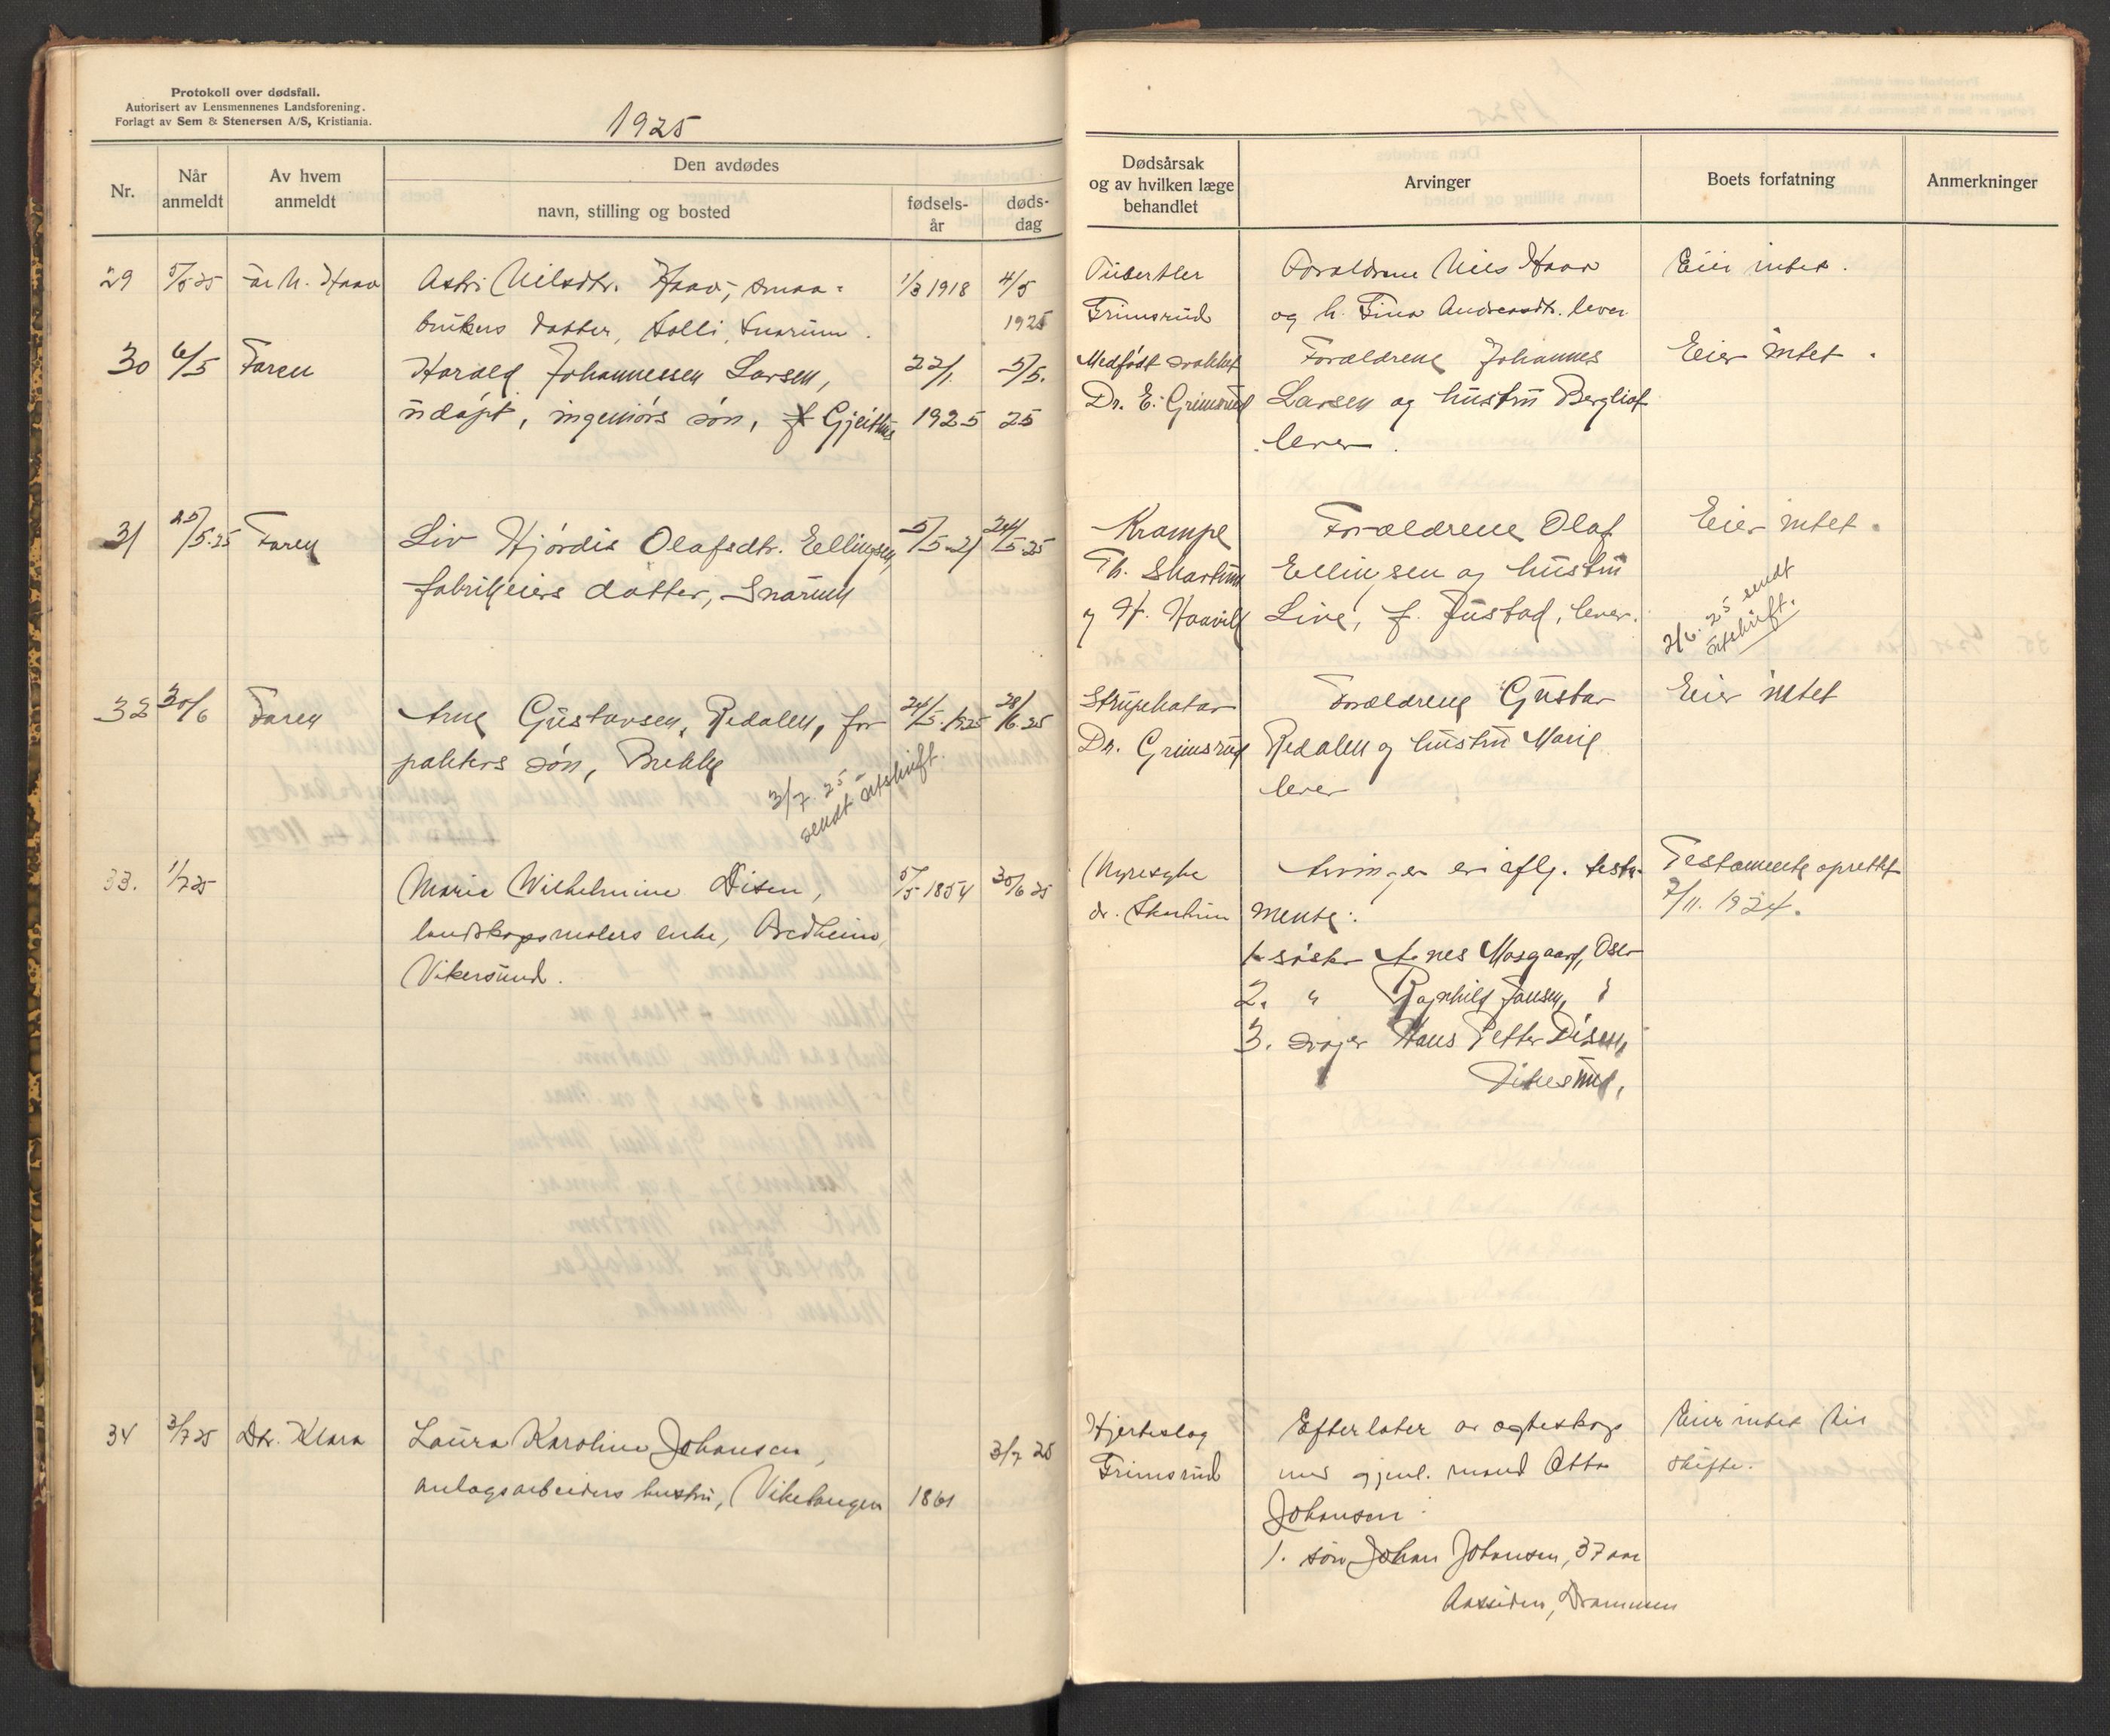 Protokoll over dødsfall.
Autorisert av Lensmennenes Landsforening.
Forlagt av Sem & Stenersen A/S, Kristiania.
1925
Nr.
Når anmeldt
Av hvem anmeldt
Den avdødes
navn, stilling og bosted
fødsels-år
døds-dag
Dødsårsak og av hvilken læge behandlet
Arvinger
Boets forfatning
Anmerkninger
29 5/5 25 Far N. Haav Astri Nilsdtr. Haav, smaa- 1/3 1918 4/5
brukers datter, Snarum. 1925
Tuberkler Forældrene Nils Haav Eier intet.
Grimsrud og h. Andreasdtr. lever
30 6/5 Faren Harald Johannessen Larsen, 22/1. 5/5.
udøpt, ingeniørs søn, Gjeithus 1925 25
Medfødt svakhet Forældrene Johannes Eier intet.
Dr. E. Grimsrud Larsen og hustru Bergliot
lever.
31 25/5.25 Faren Liv Hjørdis Olafsdtr. Ellingsen, 5/5-21 24/5.25
fabrikeiers datter, Snarum
Krampe Forældrene Olaf Eier intet.
Th. Skartum Ellingsen og hustru
og H. Haavik Live, f. Justad, lever.
2/6.25 sendt
utskrift.
32 30/6 Faren Arne Gustavsen, Redalen, for- 24/5.1925 28/6.25
pakters søn, Brekke
3/7.25
sendt utskrift.
Strupekatar Forældrene Gustav Eier intet
Dr. Grimsrud Redalen og hustru Marie
lever
33. 1/7 25 Marie Wilhelmine Disen, 5/5 1854 30/6 25
landskapsmalers enke, Bredheim,
Vikersund.
Nyresyke Arvinger er iflg. testa- Testamente oprettet
dr. Skartum mente: 7/11. 1924.
1. søster Agnes Mosgaard, Oslo
2. " Ragnhild Jansen, "
3. svoger Hans Petter Disen,
Vikersund,
34 3/7 25 Dtr. Klara Laura Karoline Johansen, 3/7 25
anlagsarbeiders hustru, Vikebaugen 1861
Hjerteslag Efterlater av egteskap Eier intet til
Grimsrud med gjenl. mand Otto skifte.
Johansen:
1. søn Johan Johansen, 37 aar
Aassiden, Drammen